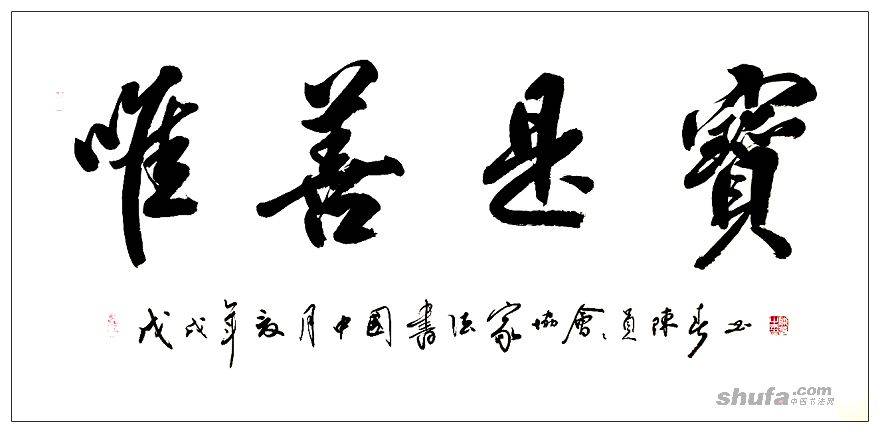 唯善是寶
戊戌年夏月中國書法家協會會員陳春玉
shufa.com
中国书法网